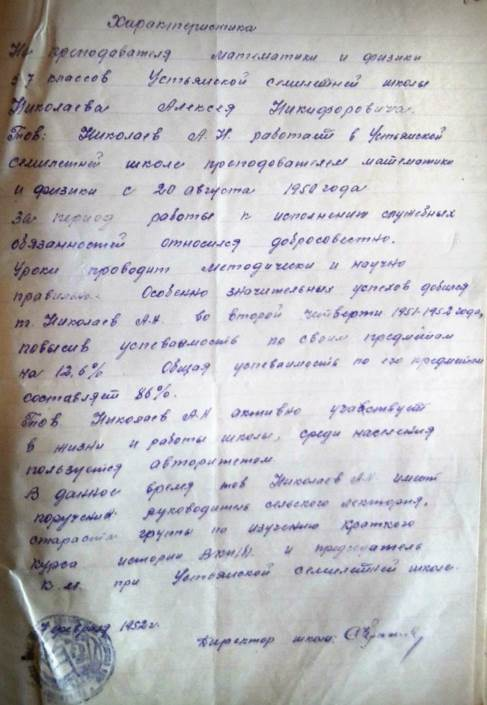 Характеристика
На преподавателя математики и физики
5-7 классов Устьямской семилетней школы
Николаева Алексея Никифоровича.
Тов: Николаев А.Н. работает в Устьямской
семилетней школе преподавателем математики
и физики с 20 августа 1950 года
За период работы к исполнению служебных
обязанностей относился добросовестно.
Уроки проводит методически и научно
правильно. Особенно значительных успехов добился
т. Николаев А.Н. во второй четверти 1951-1952 года,
повысив успеваемость по своим предметам
на 12,6% Общая успеваемость по его предметам
составляет 86%.
Тов Николаев А.Н активно учавствует
в жизни и работы школы, среди населения
пользуется авторитетом.
В данное время тов Николаев А.Н. имеет
поручения: руководитель сельского лектория,
староста группы по изучению Краткого
курса истории ВКП/б/. и председатель
К.М. при Устьямской семилетней школе.
февраля 1952 г.
Директор школы: